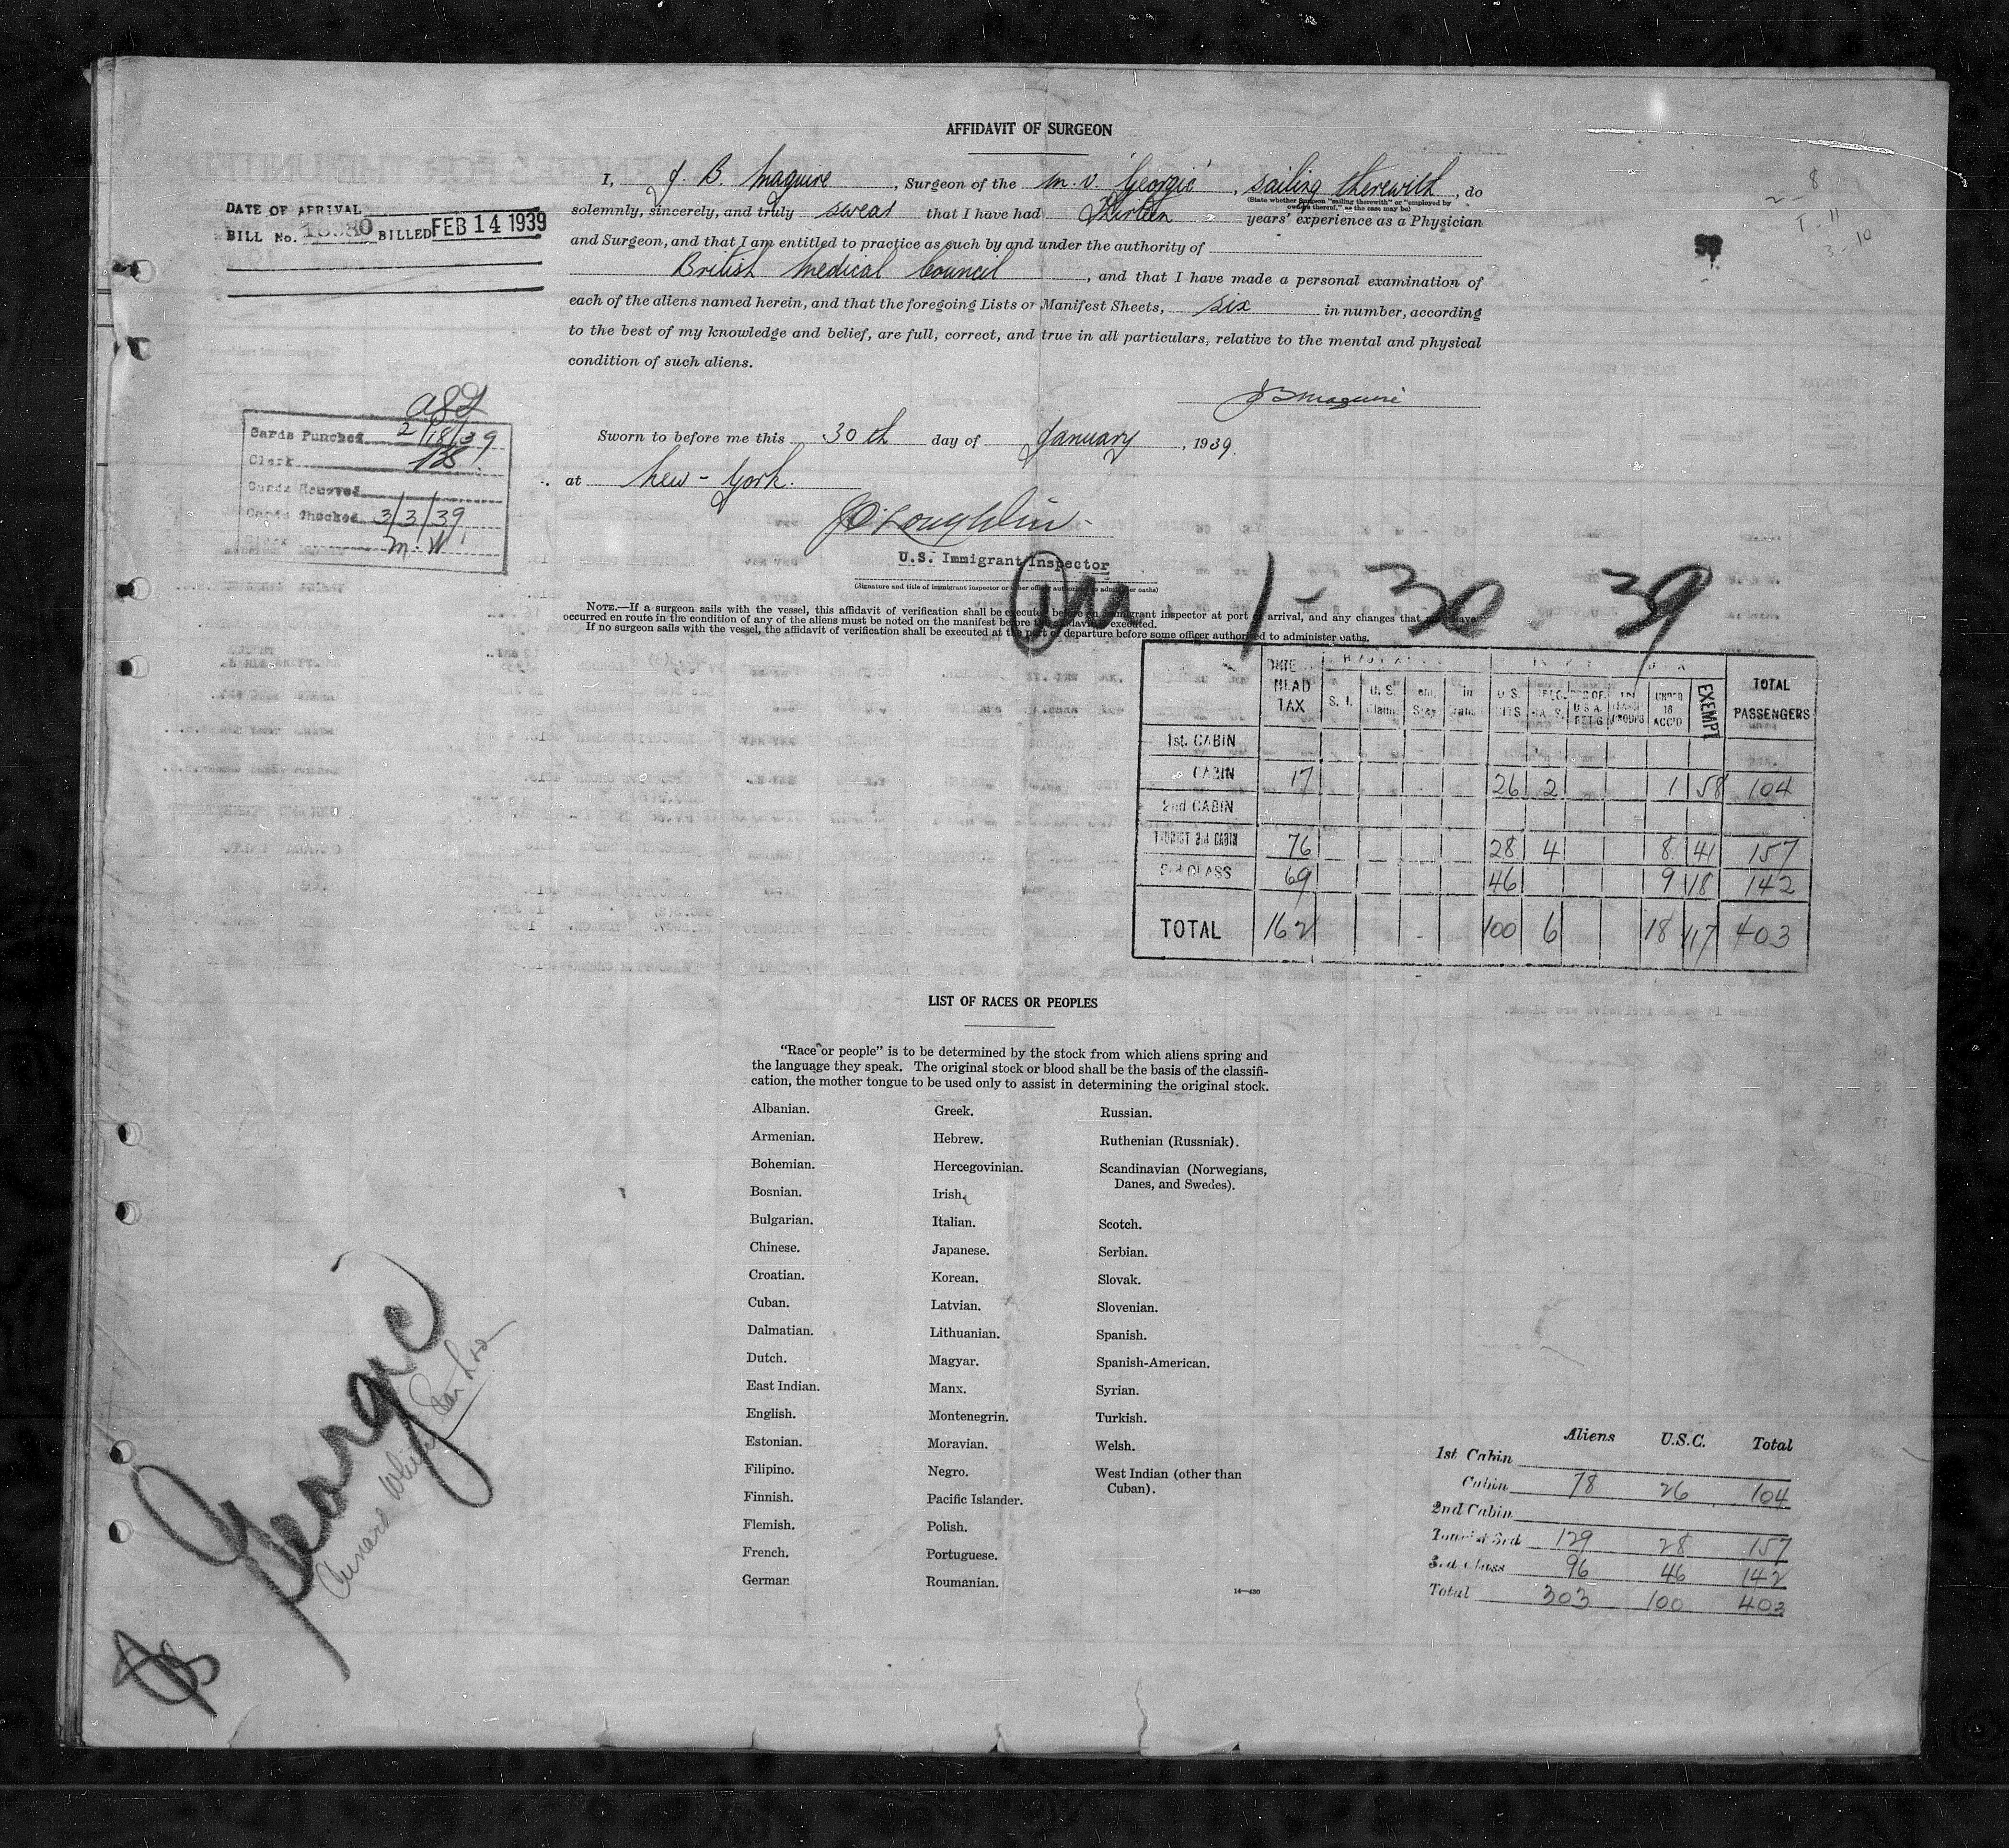 AFFIDAVIT OF SURGEON
I, J. B. Maguire, Surgeon of the M.V. 'Georgic', sailing therewith, do
(State whether Surgeon "sailing therewith" or "employed by owners thereof," as the case may be)
solemnly, sincerely, and truly swear that I have had Thirteen years' experience as a Physician
and Surgeon, and that I am entitled to practice as such by and under the authority of
British Medical Council, and that I have made a personal examination of
each of the aliens named herein, and that the foregoing Lists or Manifest Sheets, six in number, according
to the best of my knowledge and belief, are full, correct, and true in all particulars, relative to the mental and physical
condition of such aliens.
J B Maguire
Sworn to before me this 30th day of January, 1939.
at New-York.
J O'Loughlin
U.S. Immigrant Inspector
(Signature and title of immigrant inspector or other officer authorized to administer oaths)
1-30-39
NOTE.—If a surgeon sails with the vessel, this affidavit of verification shall be executed before an immigrant inspector at port of arrival, and any changes that may have
occurred en route in the condition of any of the aliens must be noted on the manifest before the affidavit is executed.
If no surgeon sails with the vessel, the affidavit of verification shall be executed at the port of departure before some officer authorized to administer oaths.
DATE OF ARRIVAL
BILL No. BILLED FEB 14 1939
Cards Punched 2/18/39
Clerk
Cards Removed
Cards Checked 3/3/39
Clerk M.W.
8
2-
1-11
3-10
HEAD TAX S. I. U. S. U.S. UNDER 16 ACC'D EXEMPT TOTAL PASSENGERS
1st. CABIN
CABIN 17 26 2 1 58 104
2nd CABIN
TOURIST 3rd CABIN 76 28 4 8 41 157
3rd CLASS 69 46 9 18 142
TOTAL 162 100 6 18 117 403
LIST OF RACES OR PEOPLES
"Race or people" is to be determined by the stock from which aliens spring and
the language they speak. The original stock or blood shall be the basis of the classifi-
cation, the mother tongue to be used only to assist in determining the original stock.
Albanian.
Armenian.
Bohemian.
Bosnian.
Bulgarian.
Chinese.
Croatian.
Cuban.
Dalmatian.
Dutch.
East Indian.
English.
Estonian.
Filipino.
Finnish.
Flemish.
French.
German
Greek.
Hebrew.
Hercegovinian.
Irish.
Italian.
Japanese.
Korean.
Latvian.
Lithuanian.
Magyar.
Manx.
Montenegrin.
Moravian.
Negro.
Pacific Islander.
Polish.
Portuguese.
Roumanian.
Russian.
Ruthenian (Russniak).
Scandinavian (Norwegians,
Danes, and Swedes).
Scotch.
Serbian.
Slovak.
Slovenian.
Spanish.
Spanish-American.
Syrian.
Turkish.
Welsh.
West Indian (other than
Cuban).
14—430
Georgic
Cunard White Star Line
Aliens U.S.C. Total
1st Cabin
Cabin 78 26 104
2nd Cabin
Tourist 3rd 129 28 157
3rd Class 96 46 142
Total 303 100 403